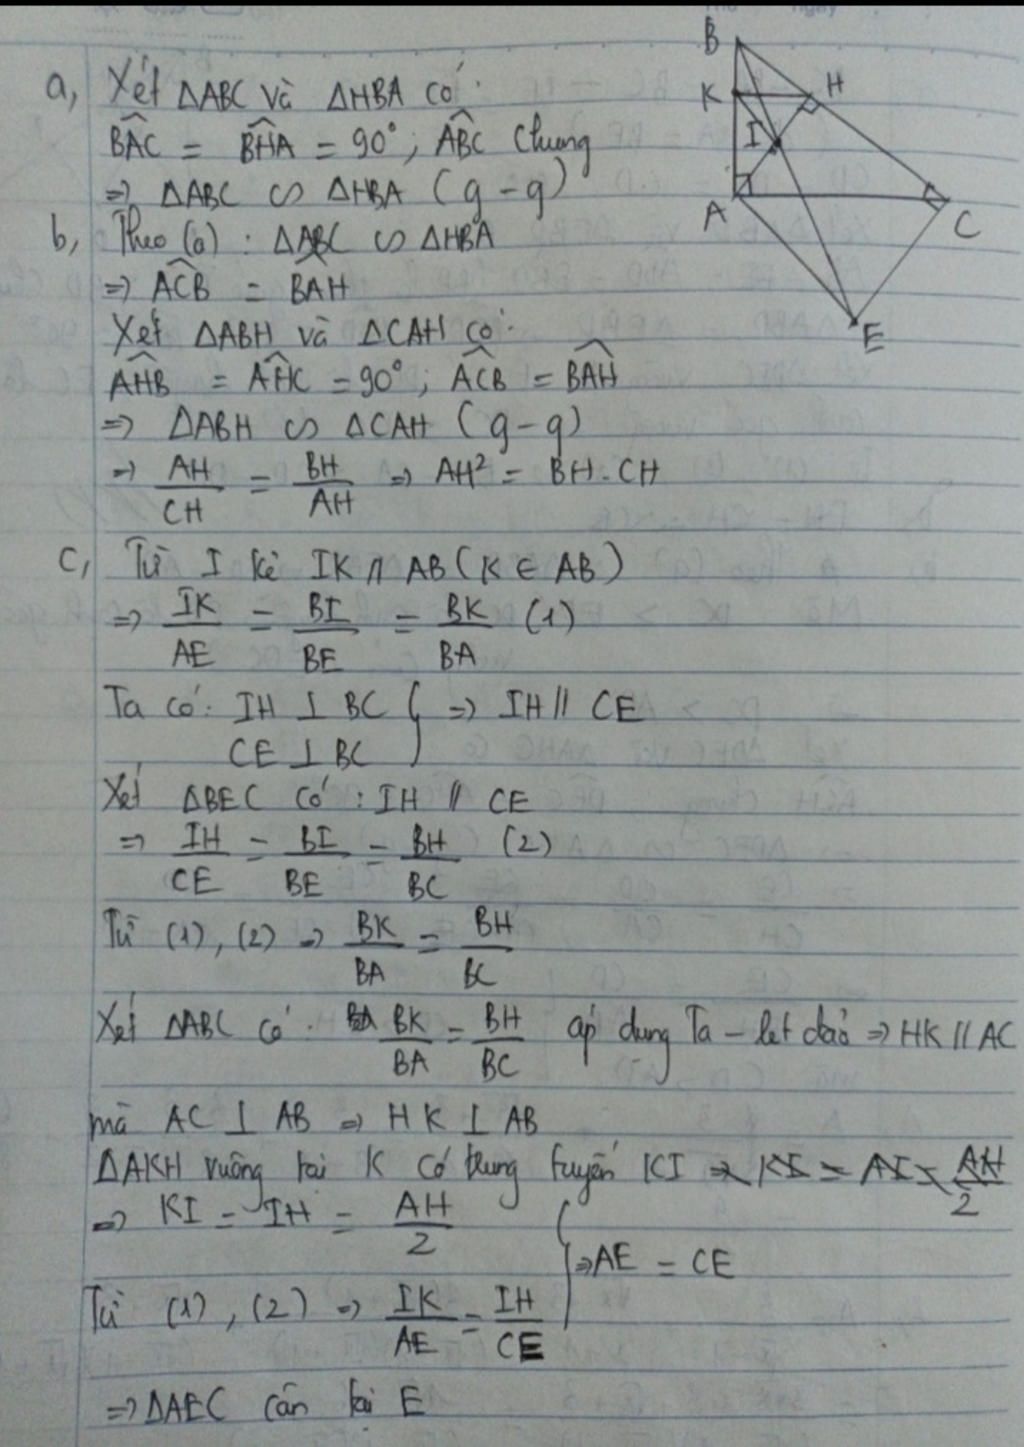 a, Xét ΔABC và ΔHBA có:
B̂AC = B̂HA = 90°; ÂBC Chung
=> ΔABC ∽ ΔHBA (g-g)
b, Theo (a): ΔABC ∽ ΔHBA
=> ÂCB = B̂AH
Xét ΔABH và ΔCAH có:
ÂHB = ÂHC = 90°; ÂCB = B̂AH
=> ΔABH ∽ ΔCAH (g-g)
=> AH/CH = BH/AH => AH² = BH.CH
c, Từ I kẻ IK // AB (K ∈ AB)
=> IK/AE = BI/BE = BK/BA (1)
Ta có: IH ⊥ BC } => IH // CE
CE ⊥ BC
Xét ΔBEC có: IH // CE
=> IH/CE = BI/BE = BH/BC (2)
Từ (1), (2) => BK/BA = BH/BC
Xét ΔABC có: BK/BA = BH/BC áp dụng Ta-let đảo => HK // AC
mà AC ⊥ AB => HK ⊥ AB
ΔAKH vuông tại K có trung tuyến KI => KI = AI = AH/2
=> KI = IH = AH/2
=> AE = CE
Từ (1), (2) => IK/AE = IH/CE
=> ΔAEC cân tại E
B
K
H
I
A
C
E